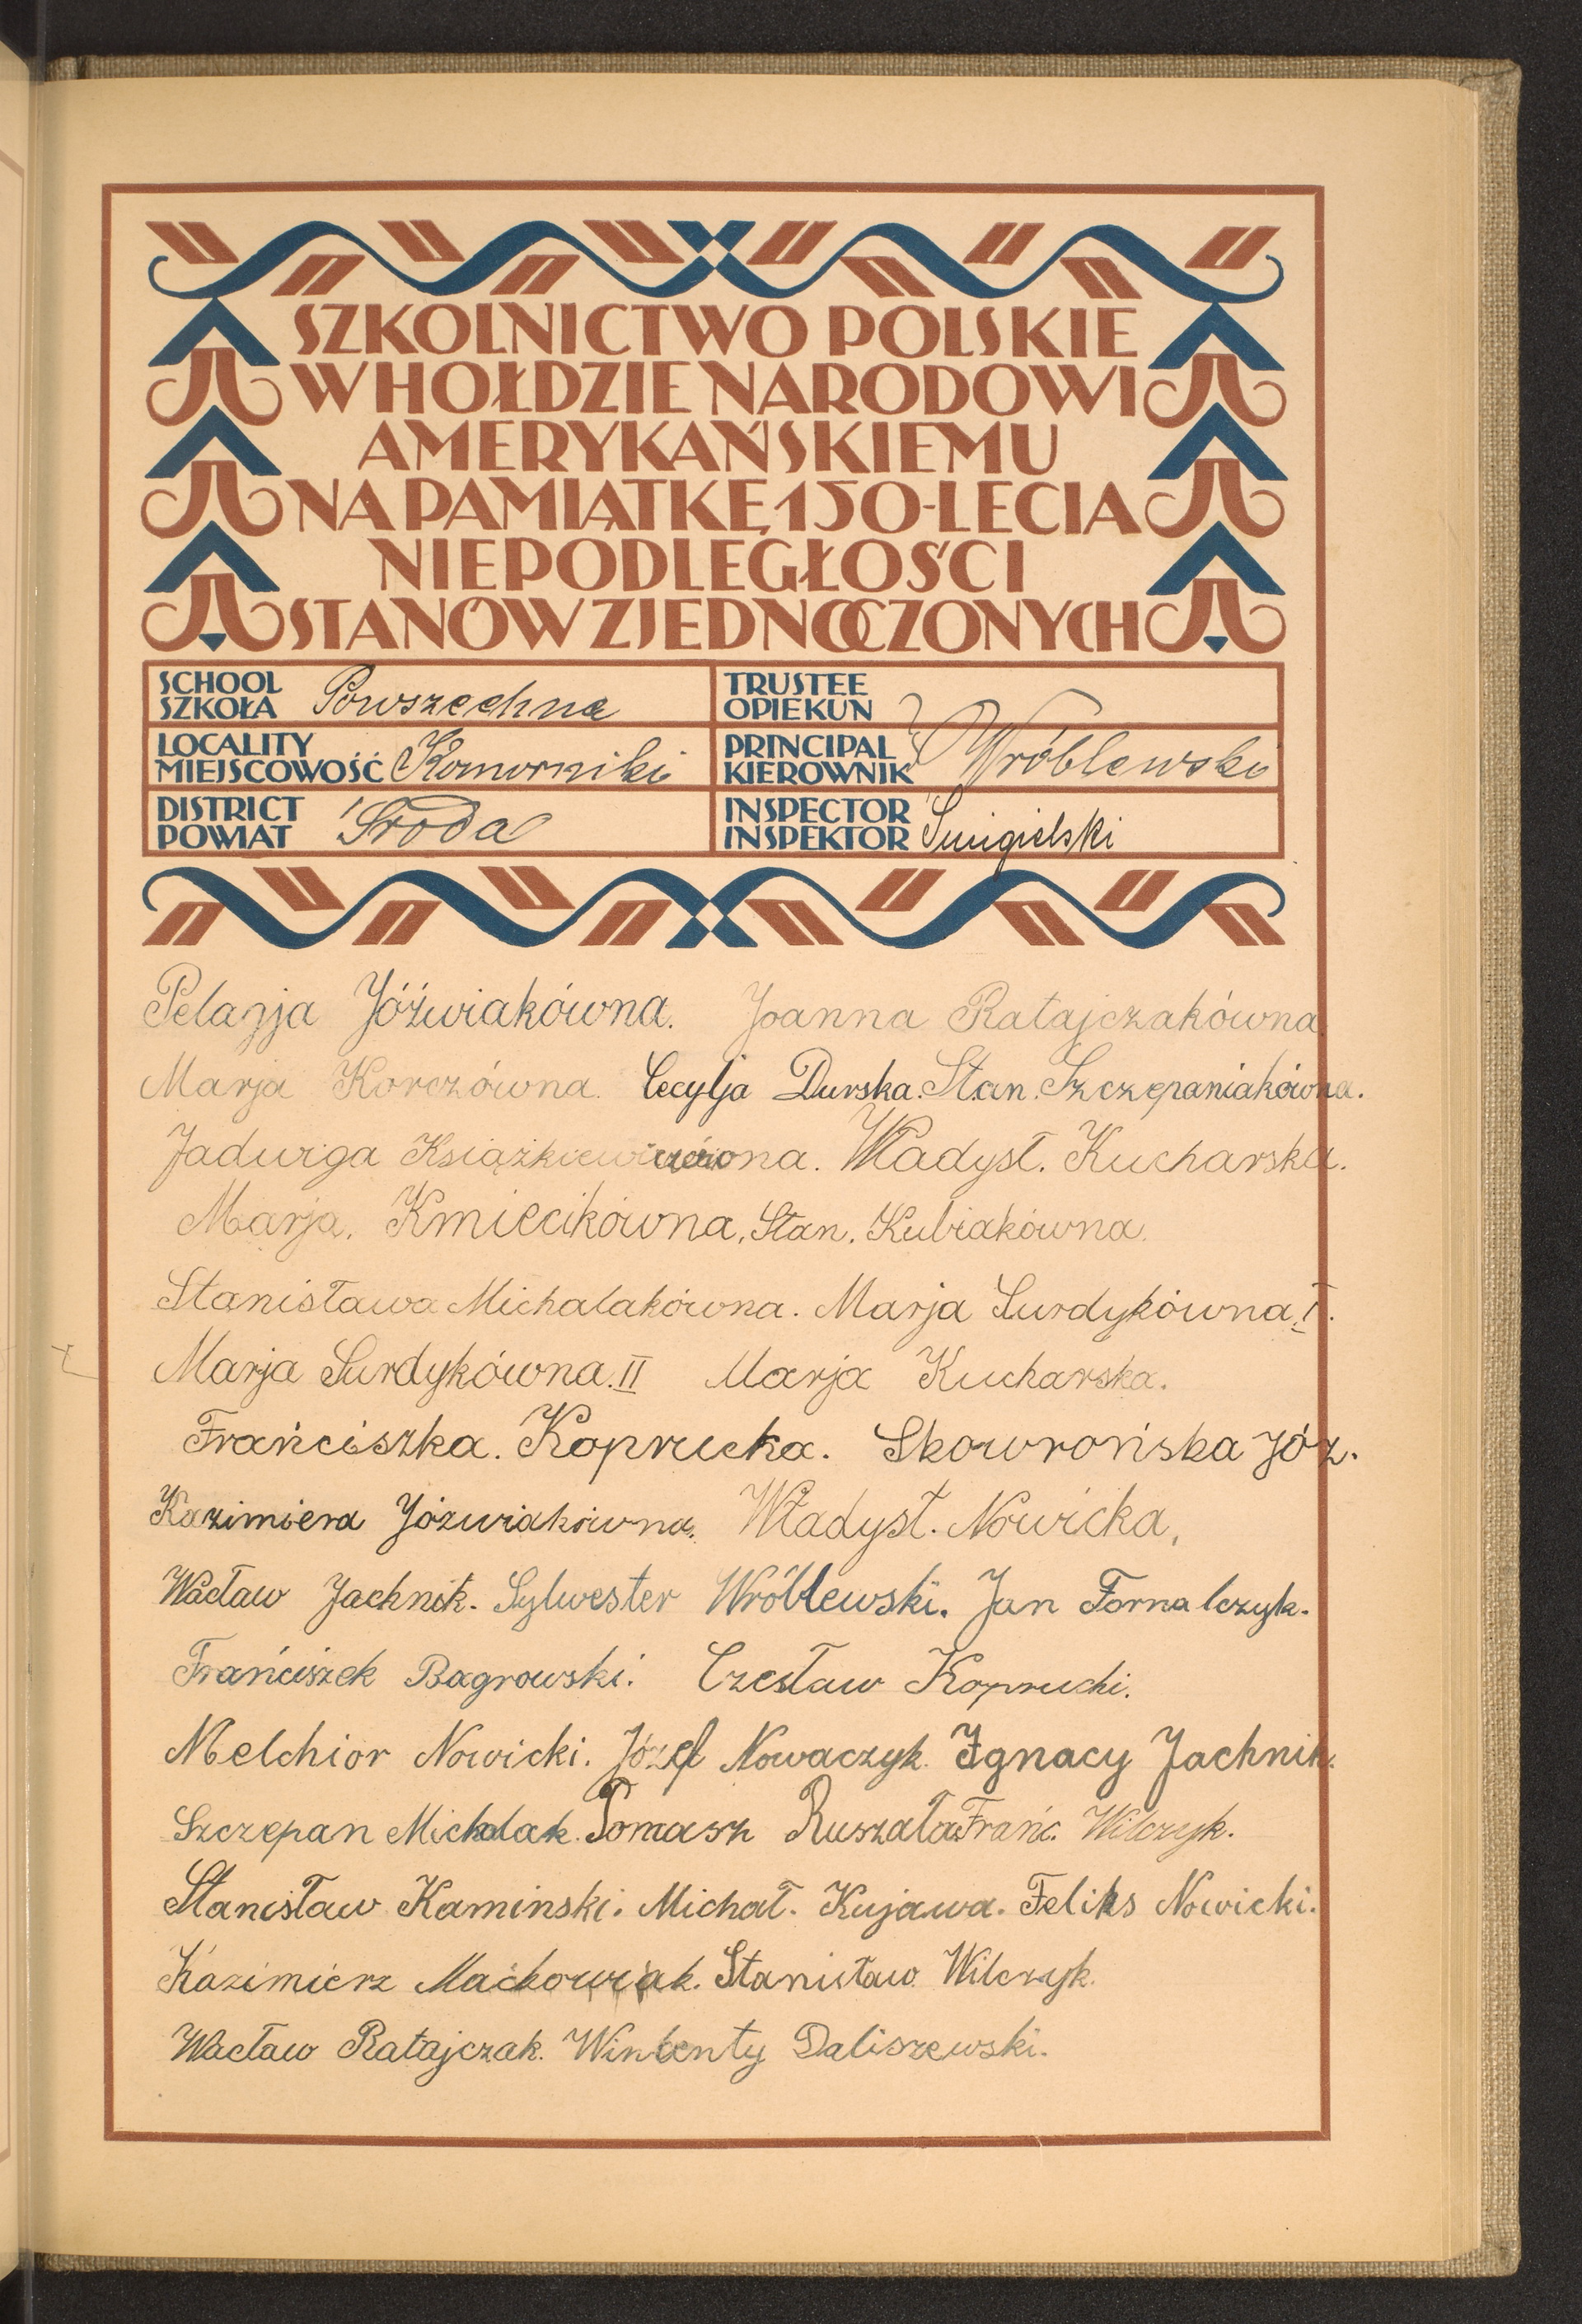 SZKOLNICTWO POLSKIE
W HOŁDZIE NARODOWI
AMERYKAŃSKIEMU
NA PAMIĄTKĘ 150-LECIA
NIEPODLEGŁOŚCI
STANÓW ZJEDNOCZONYCH
SCHOOL
SZKOŁA Powszechna
TRUSTEE
OPIEKUN
LOCALITY
MIEJSCOWOŚĆ Komorniki
PRINCIPAL
KIEROWNIK Wróblewski
DISTRICT
POWIAT Środa
INSPECTOR
INSPEKTOR Śmigielski
Pelagja Jóźwiakówna. Joanna Ratajczakówna
Marja Korczówna. Cecylja Durska. Stan. Szczepaniakówna.
Jadwiga Władysł. Kucharska.
Marja. Kmiecikówna, Stan. Kubiakówna.
Stanisława Michalakówna. Marja Surdykówna I.
Marja Surdykówna. II Marja Kucharska.
Frańciszka. Koprucka. Skowrońska Józ.
Kazimiera Jóżwiakówna. Władysł. Nowicka,
Wacław Jachnik. Sylwester Wróblewski. Jan Fornalczyk.
Frańciszek Bagrowski. Czesław Koprucki.
Melchior Nowicki. Józef Nowaczyk. Ignacy Jachnik.
Szczepan Michalak. Tomasz Ruszała Frańc. Wilczyk.
Stanisław Kaminski. Michał. Kujawa. Feliks Nowicki.
Kazimierz Maćkowiak. Stanisław Wilczyk.
Wacław Ratajczak. Wincenty Daliszewski.